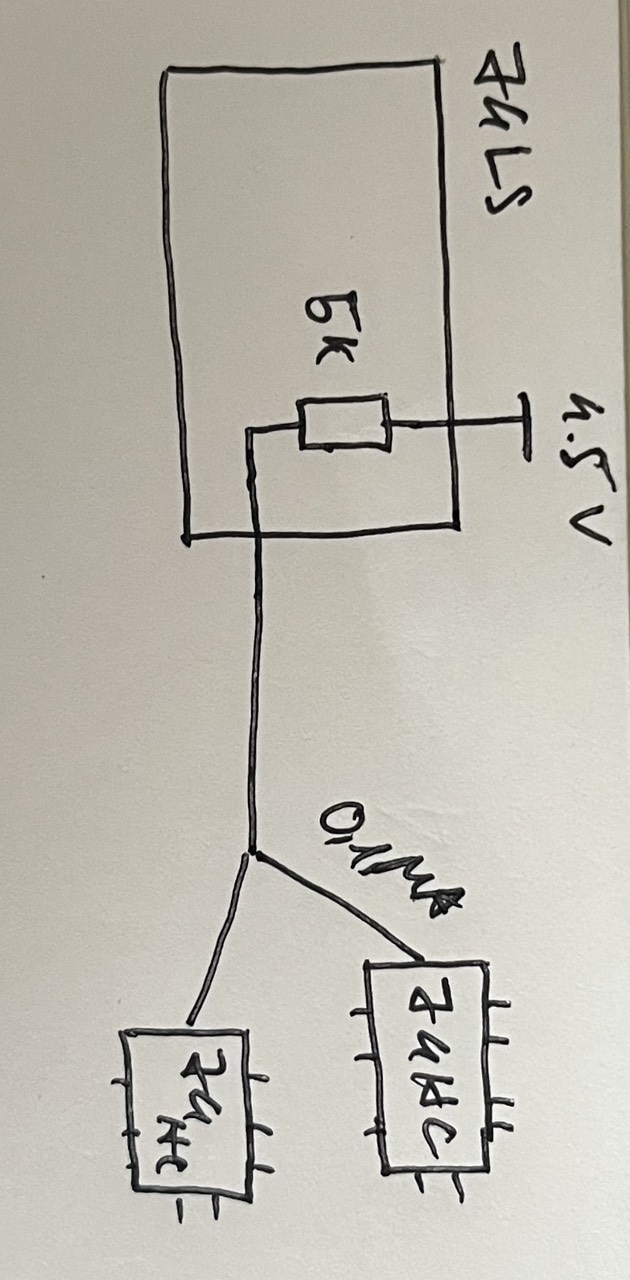 74LS
4.5V
5K
0,1MA
74HC
74HC